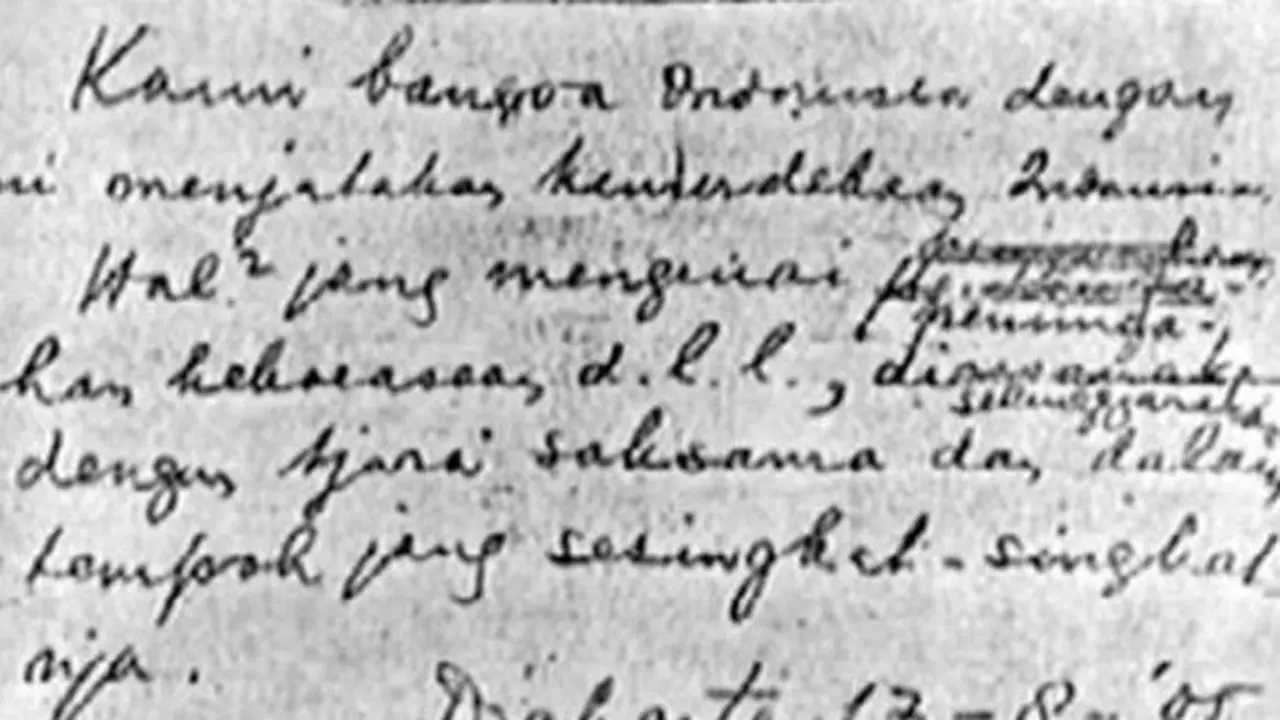 Kami bangsa Indonesia dengan
ni menjatakan kemerdekaan Indonesia
Hal² jang mengenai peminda-
han kekoeasaan d.l.l., diselenggarakan
dengan tjara saksama dan dalam
tempoh jang sesingkat-singkat
nja.
Djakarta 17 - 8 - '05